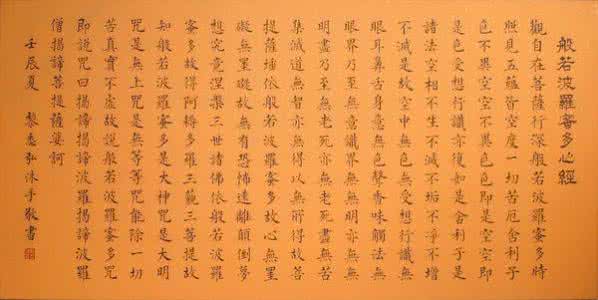 般若波羅蜜多心經
觀自在菩薩行深般若波羅蜜多時
照見五蘊皆空度一切苦厄舍利子
色不異空空不異色色即是空空即
是色受想行識亦復如是舍利子是
諸法空相不生不滅不垢不淨不增
不減是故空中無色無受想行識無
眼耳鼻舌身意無色聲香味觸法無
眼界乃至無意識界無無明亦無無
明盡乃至無老死亦無老死盡無苦
集滅道無智亦無得以無所得故菩
提薩埵依般若波羅蜜多故心無罣
礙無罣礙故無有恐怖遠離顛倒夢
想究竟涅槃三世諸佛依般若波羅
蜜多故得阿耨多羅三藐三菩提故
知般若波羅蜜多是大神咒是大明
咒是無上咒是無等等咒能除一切
苦真實不虛故說般若波羅蜜多咒
即說咒曰揭諦揭諦波羅揭諦波羅
僧揭諦菩提薩婆訶
壬辰夏 黎 弘沐手敬書